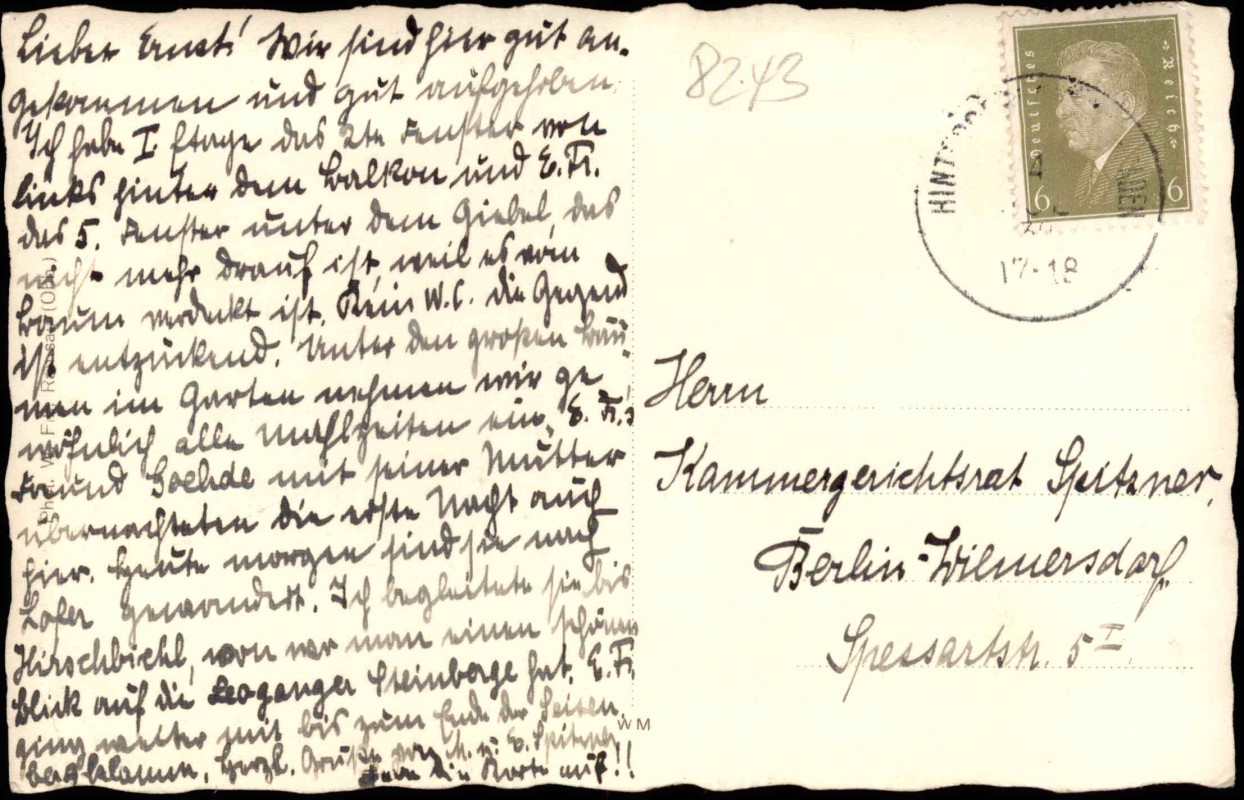 Lieber Ernst! Wir sind hier gut an-
gekommen und gut aufgehoben.
Ich habe I. Etage das 2te Fenster von
links hinter dem Balkon und E. Fr.
das 5. Fenster unter dem Giebel, das
nicht mehr drauf ist, weil es vom
Baum verdeckt ist. Kein W.C. die Gegend
ist entzückend. Unter den großen Bäu-
men im Garten nehmen wir ge-
wöhnlich alle Mahlzeiten ein. E. Fr.s
Freund Goehde mit seiner Mutter
übernachteten die erste Nacht auch
hier. Heute morgen sind sie nach
Lofer gewandert. Ich begleitete sie bis
Hirschbichl, von wo man einen schönen
Blick auf die Leoganger Steinberge hat. E. Fr.
ging weiter mit bis zum Ende der Seisen-
bergklamm. Herzl. Grüße von M. u. E. Spitzner
die Karte auf!!
8243
Deutsches Reich
6 6
17-18
Herrn
Kammergerichtsrat Spitzner,
Berlin-Wilmersdorf
Spessartstr. 5 I
WM